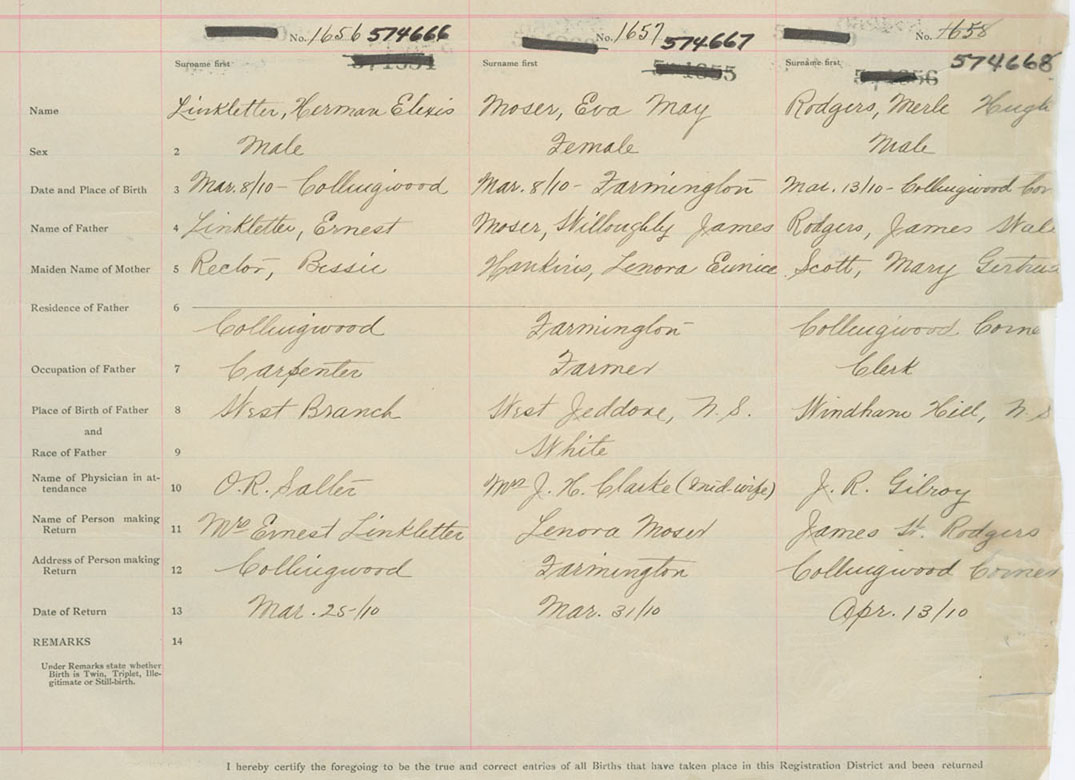 No. 1656 574666 No. 1657 574667 No. 1658
Surname first Surname first Surname first 574668
Name Linkletter, Herman Elexis Moser, Eva May Rodgers, Merle Hugh
Sex 2 Male Female Male
Date and Place of Birth 3 Mar. 8/10 - Collingwood Mar. 8/10 - Farmington Mar. 13/10 - Collingwood Cor
Name of Father 4 Linkletter, Ernest Moser, Willoughby James Rodgers, James
Maiden Name of Mother 5 Rector, Bessie Lenora Eunice Scott, Mary Gertrud
Residence of Father 6
Collingwood Farmington Collingwood Corne
Occupation of Father 7 Carpenter Farmer Clerk
Place of Birth of Father 8 West Branch West Jeddore, N.S. Windham Hill, N.S
and
Race of Father 9 White
Name of Physician in at-
tendance 10 O.R. Salter Mrs J. H. Clarke (mid-wife) J. R. Gilroy
Name of Person making
Return 11 Mrs Ernest Linkletter Lenora Moser James W. Rodgers
Address of Person making
Return 12 Collingwood Farmington Collingwood Corner
Date of Return 13 Mar. 25/10 Mar. 31/10 Apr. 13/10
REMARKS 14
Under Remarks state whether
Birth is Twin, Triplet, Ille-
gitimate or Still-birth.
I hereby certify the foregoing to be the true and correct entries of all Births that have taken place in this Registration District and been returned